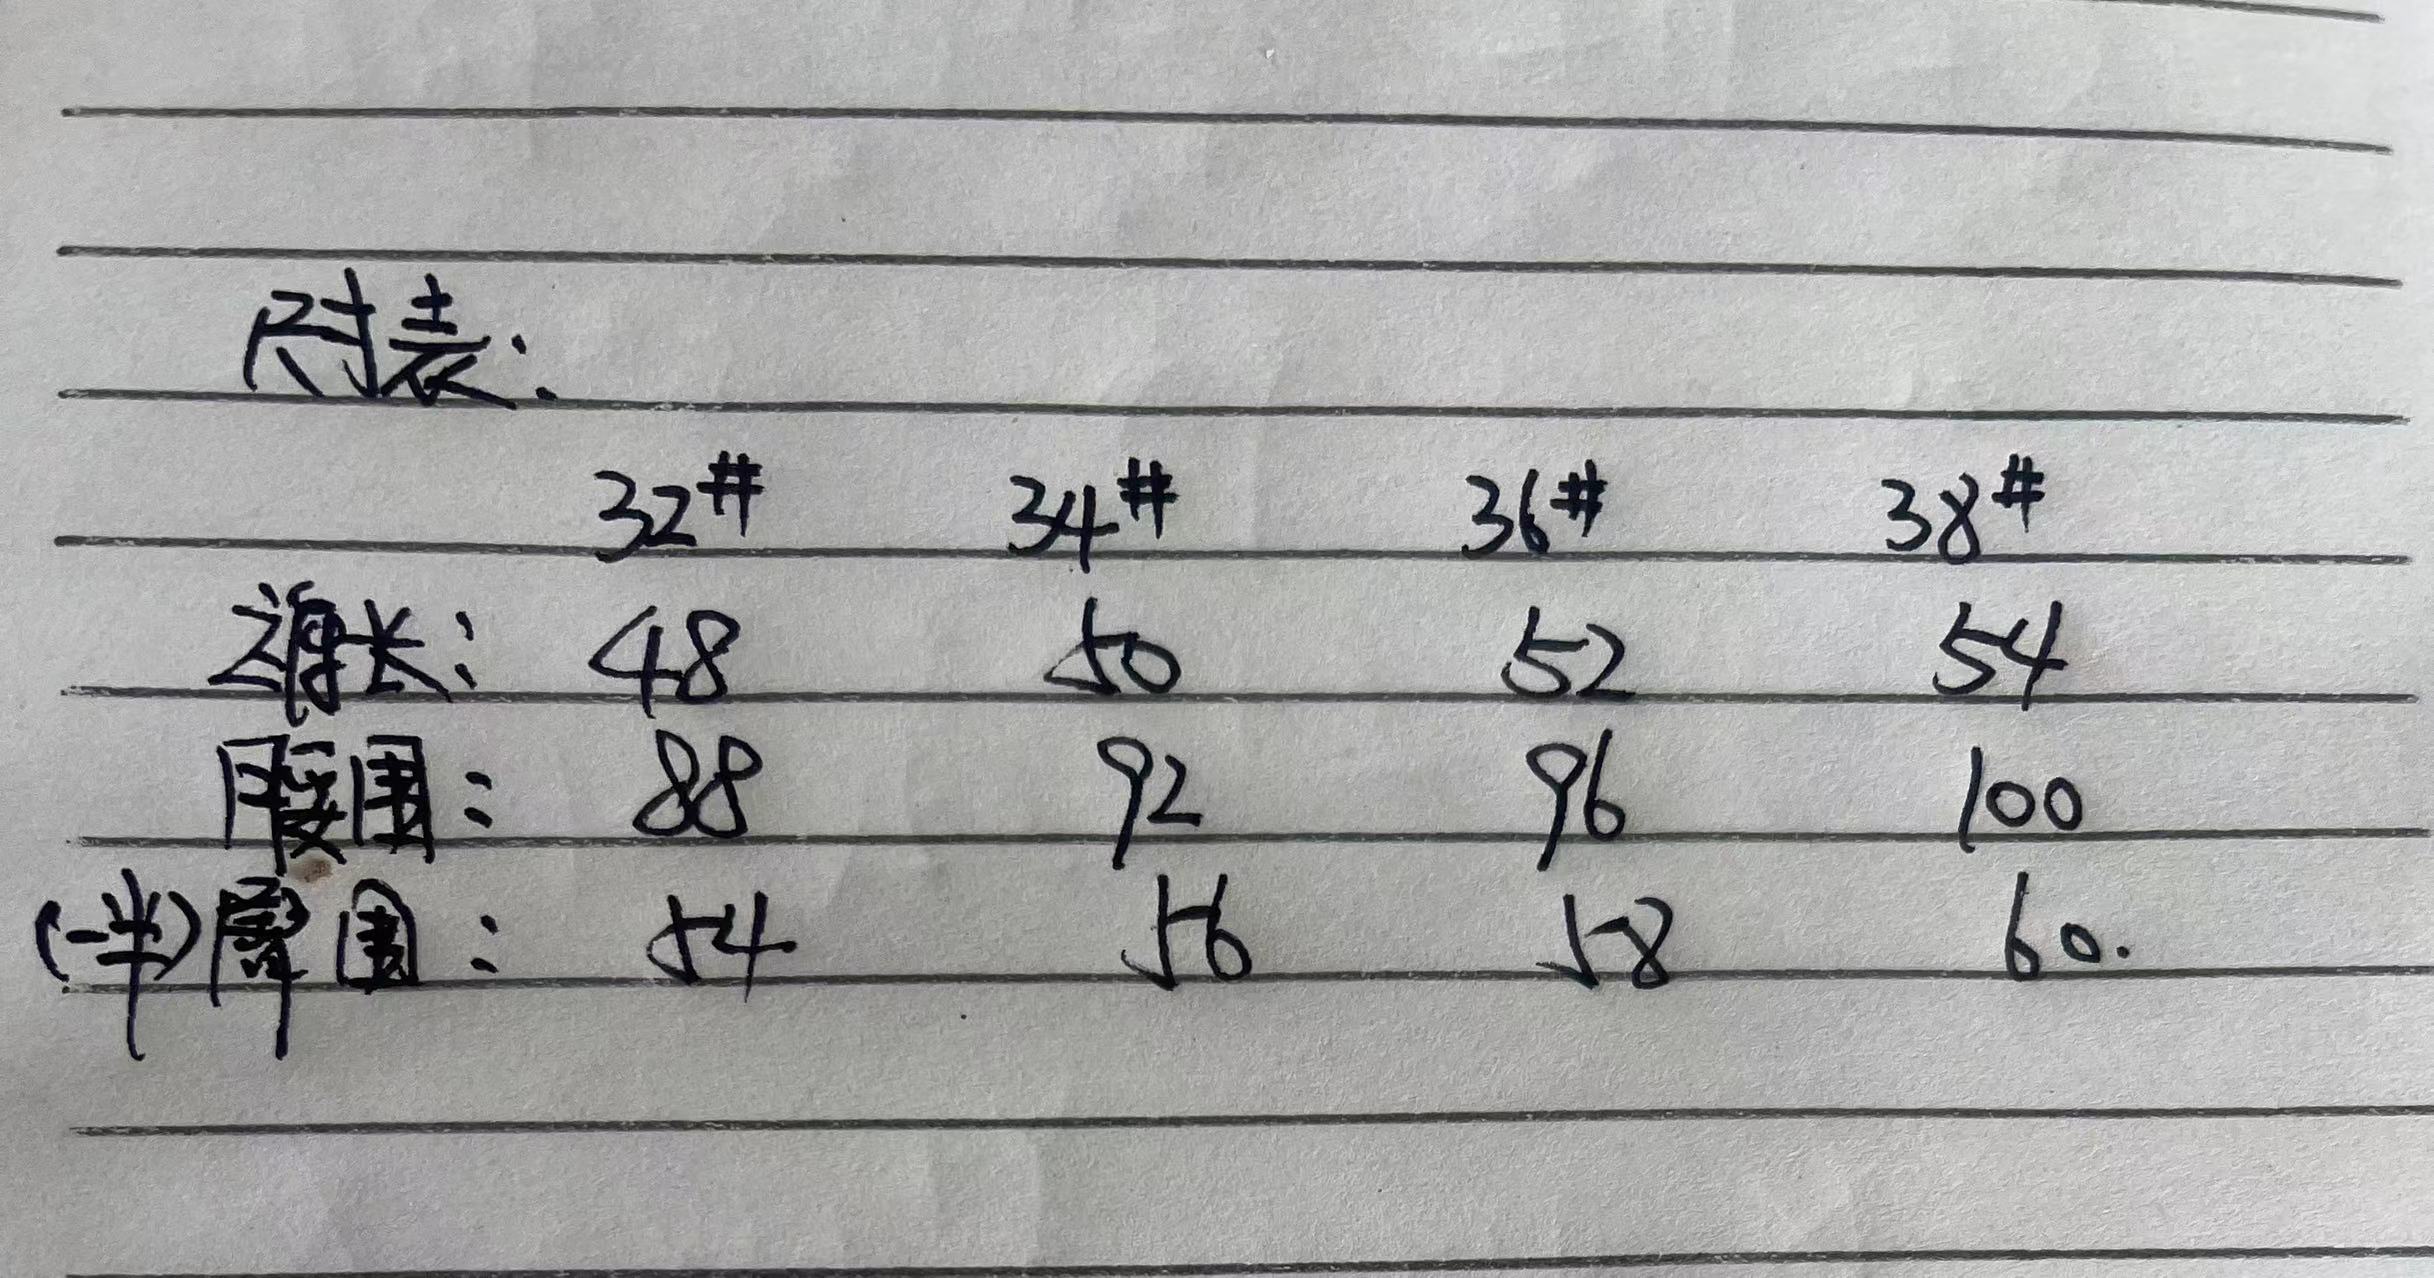 尺寸表:
32# 34# 36# 38#
裤长: 48 50 52 54
腰围: 88 92 96 100
(一半)臀围: 54 56 58 60.